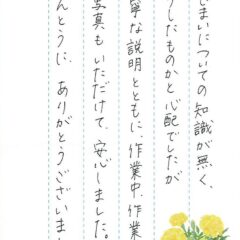 じまいについての知識が無く、
うしたものかと心配でしたが
寧な説明とともに、作業中、作業
写真もいただけて、安心しました。
んとうに、ありがとうございまし